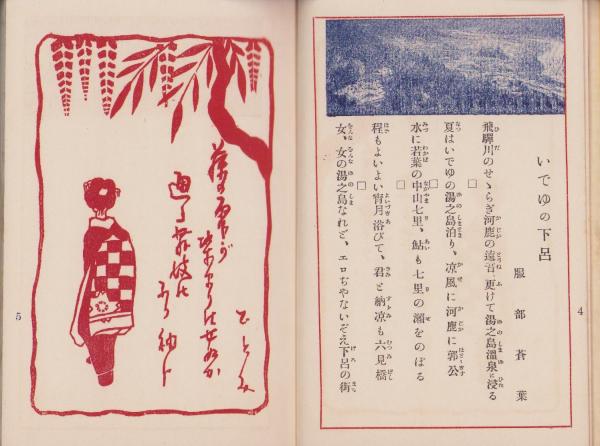 いでゆの下呂
服部蒼葉
飛驒川のせゝらぎ河鹿の遠音、更けて湯之島溫泉に浸る
夏はいでゆの湯之島泊り、凉風に河鹿に郭公
水に若葉の中山七里、鮎も七里の瀨をのぼる
程もよいよい宵月浴びて、君と納凉も六見橋
女、女の湯之島なれど、エロぢやないぞえ下呂の街
4
通る舞妓の
5